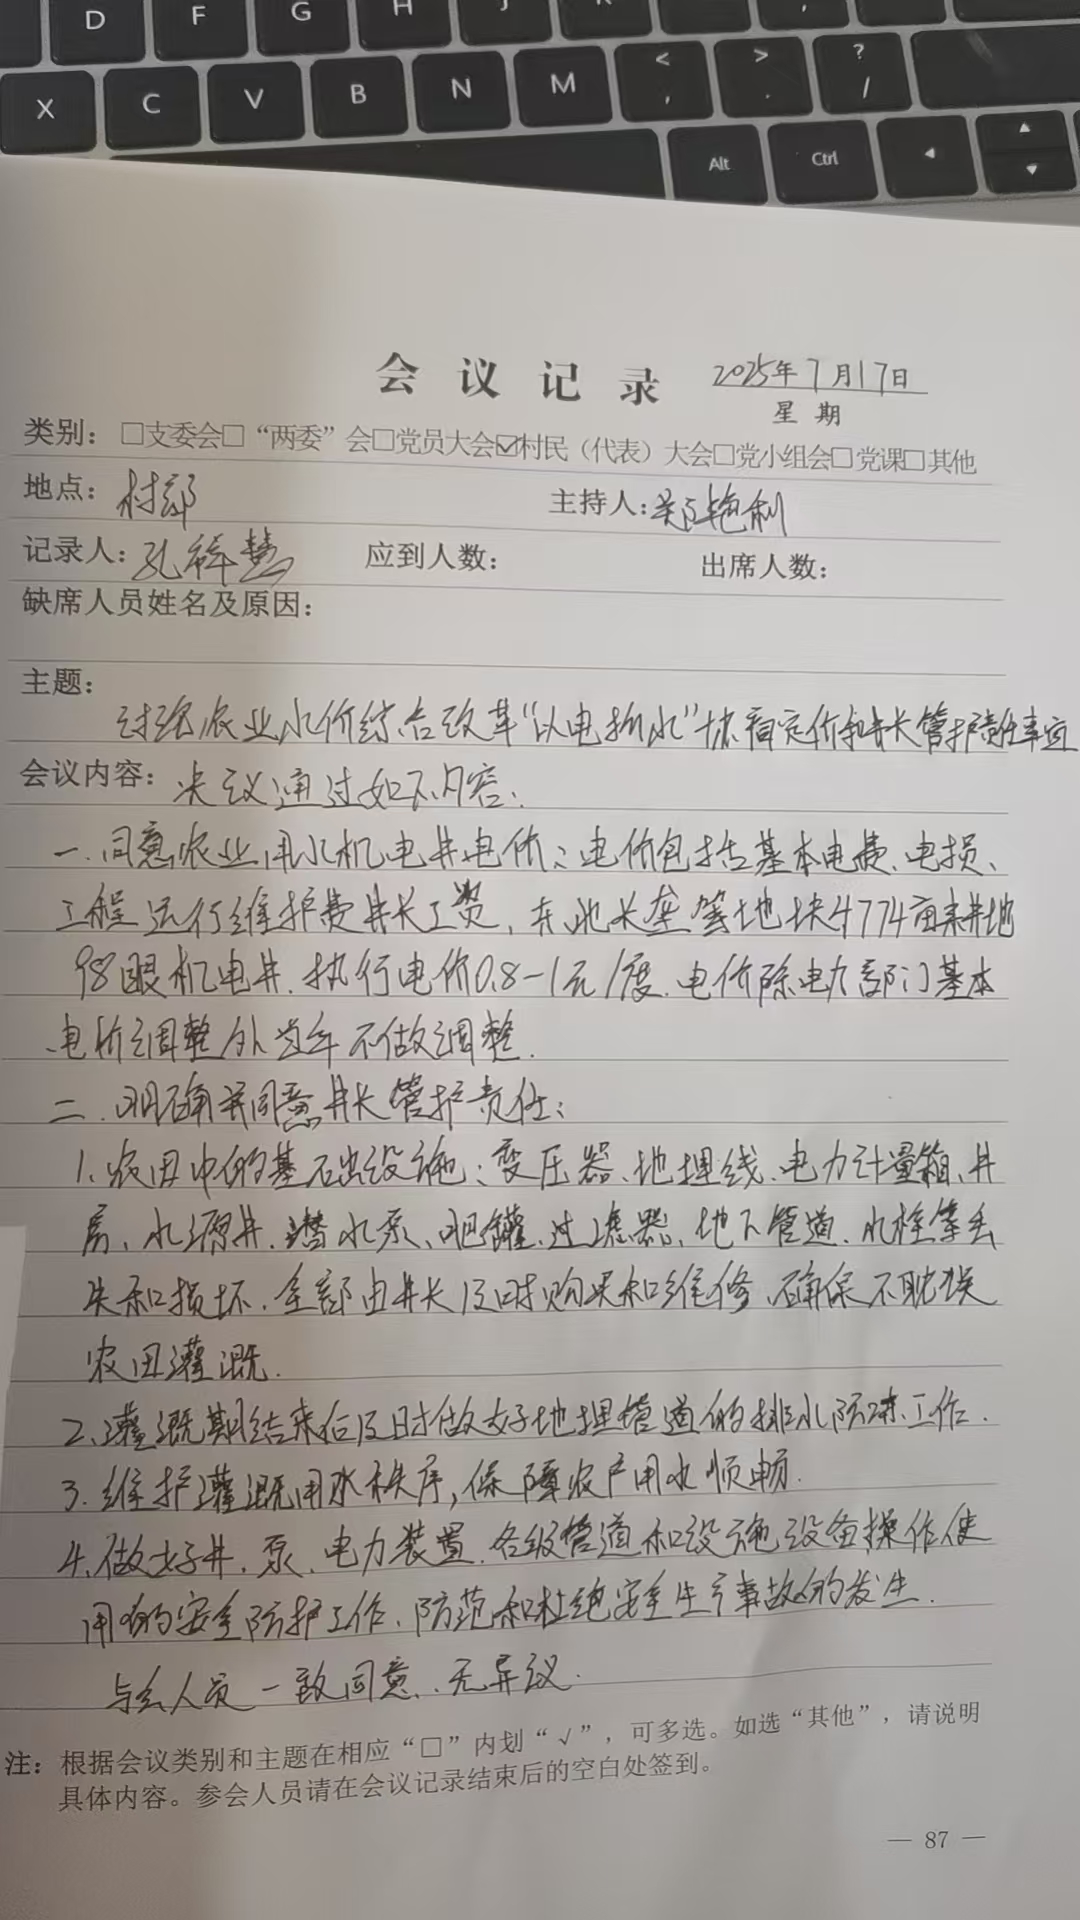 D F G H J K
X C V B N M < , > . ? /
Alt Ctrl
会 议 记 录 2025年7月17日
星 期
类别：□支委会□“两委”会□党员大会☑村民（代表）大会□党小组会□党课□其他
地点：村部 主持人：郑艳利
记录人：孔祥慧 应到人数： 出席人数：
缺席人员姓名及原因：
主题：
讨论农业水价综合改革“以电折水”协商定价和井长管护责任事宜
会议内容：决议通过如下内容：
一.同意农业用水机电井电价：电价包括基本电费、电损、
工程运行维护费井长工资，在此长垄等地块4774亩来井地
98眼机电井.执行电价0.8-1元/度.电价除电力部门基本
电价调整外当年不做调整.
二.明确并同意井长管护责任：
1.农田中的基础设施：变压器、地埋线、电力计量箱、井
房、水源井、潜水泵、肥罐、过滤器、地下管道、水栓等丢
失和损坏.全部由井长及时购买和维修、确保不耽误
农田灌溉.
2.灌溉期结束后及时做好地埋管道的排水防冻工作.
3.维护灌溉用水秩序，保障农户用水顺畅.
4.做好井、泵、电力装置、各级管道和设施设备操作使
用的安全防护工作、防范和杜绝安全生产事故的发生.
与会人员一致同意、无异议.
注：根据会议类别和主题在相应“□”内划“√”，可多选。如选“其他”，请说明
具体内容。参会人员请在会议记录结束后的空白处签到。
— 87 —